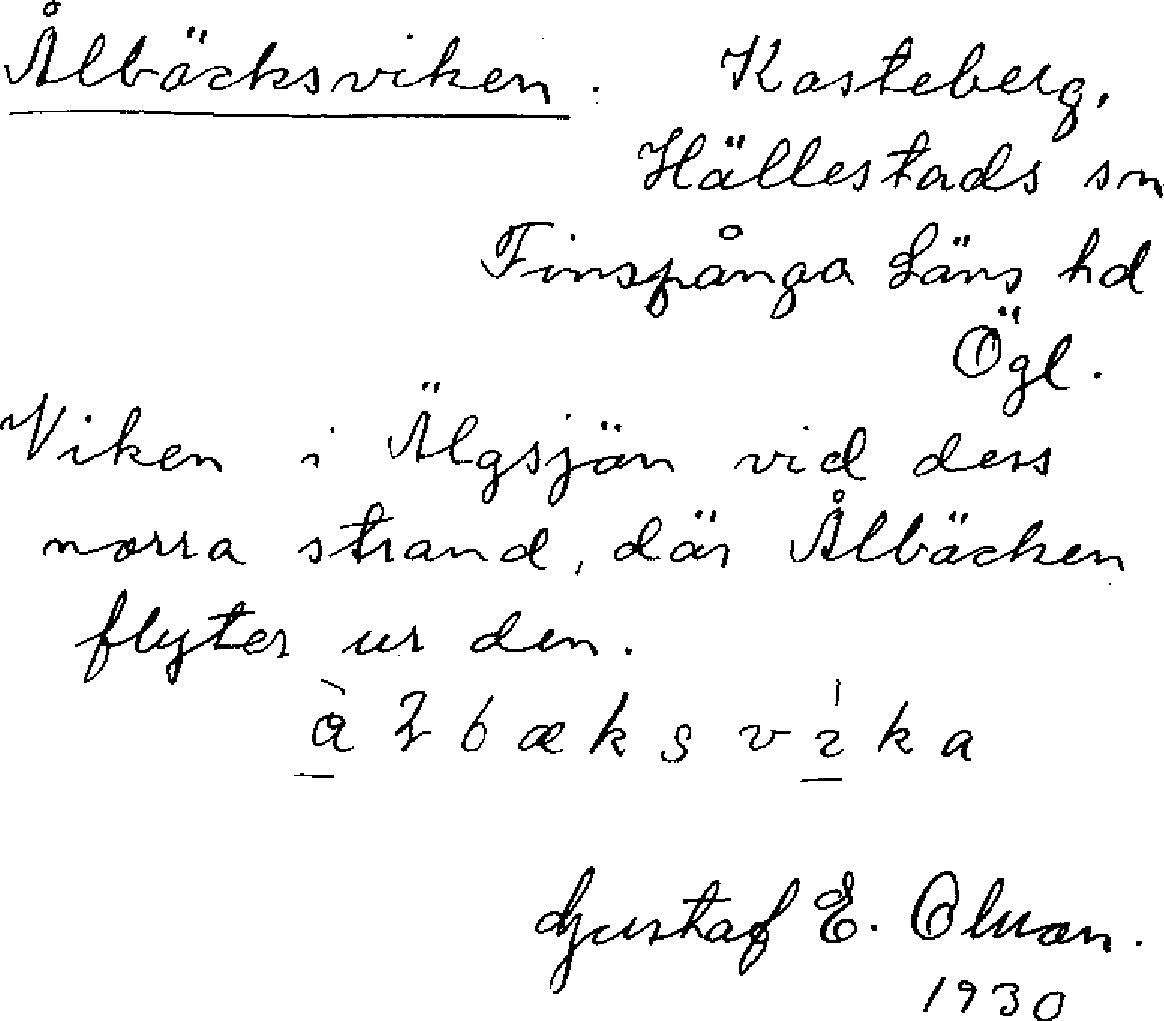 Ålbäcksviken. Kasteberg,
Hällestads sn
Finspånga Läns hd
Ögl.
Viken i Älgsjön vid dess
norra strand, där Ålbäcken
flyter ur den.
Gustaf E. Olsson.
1930